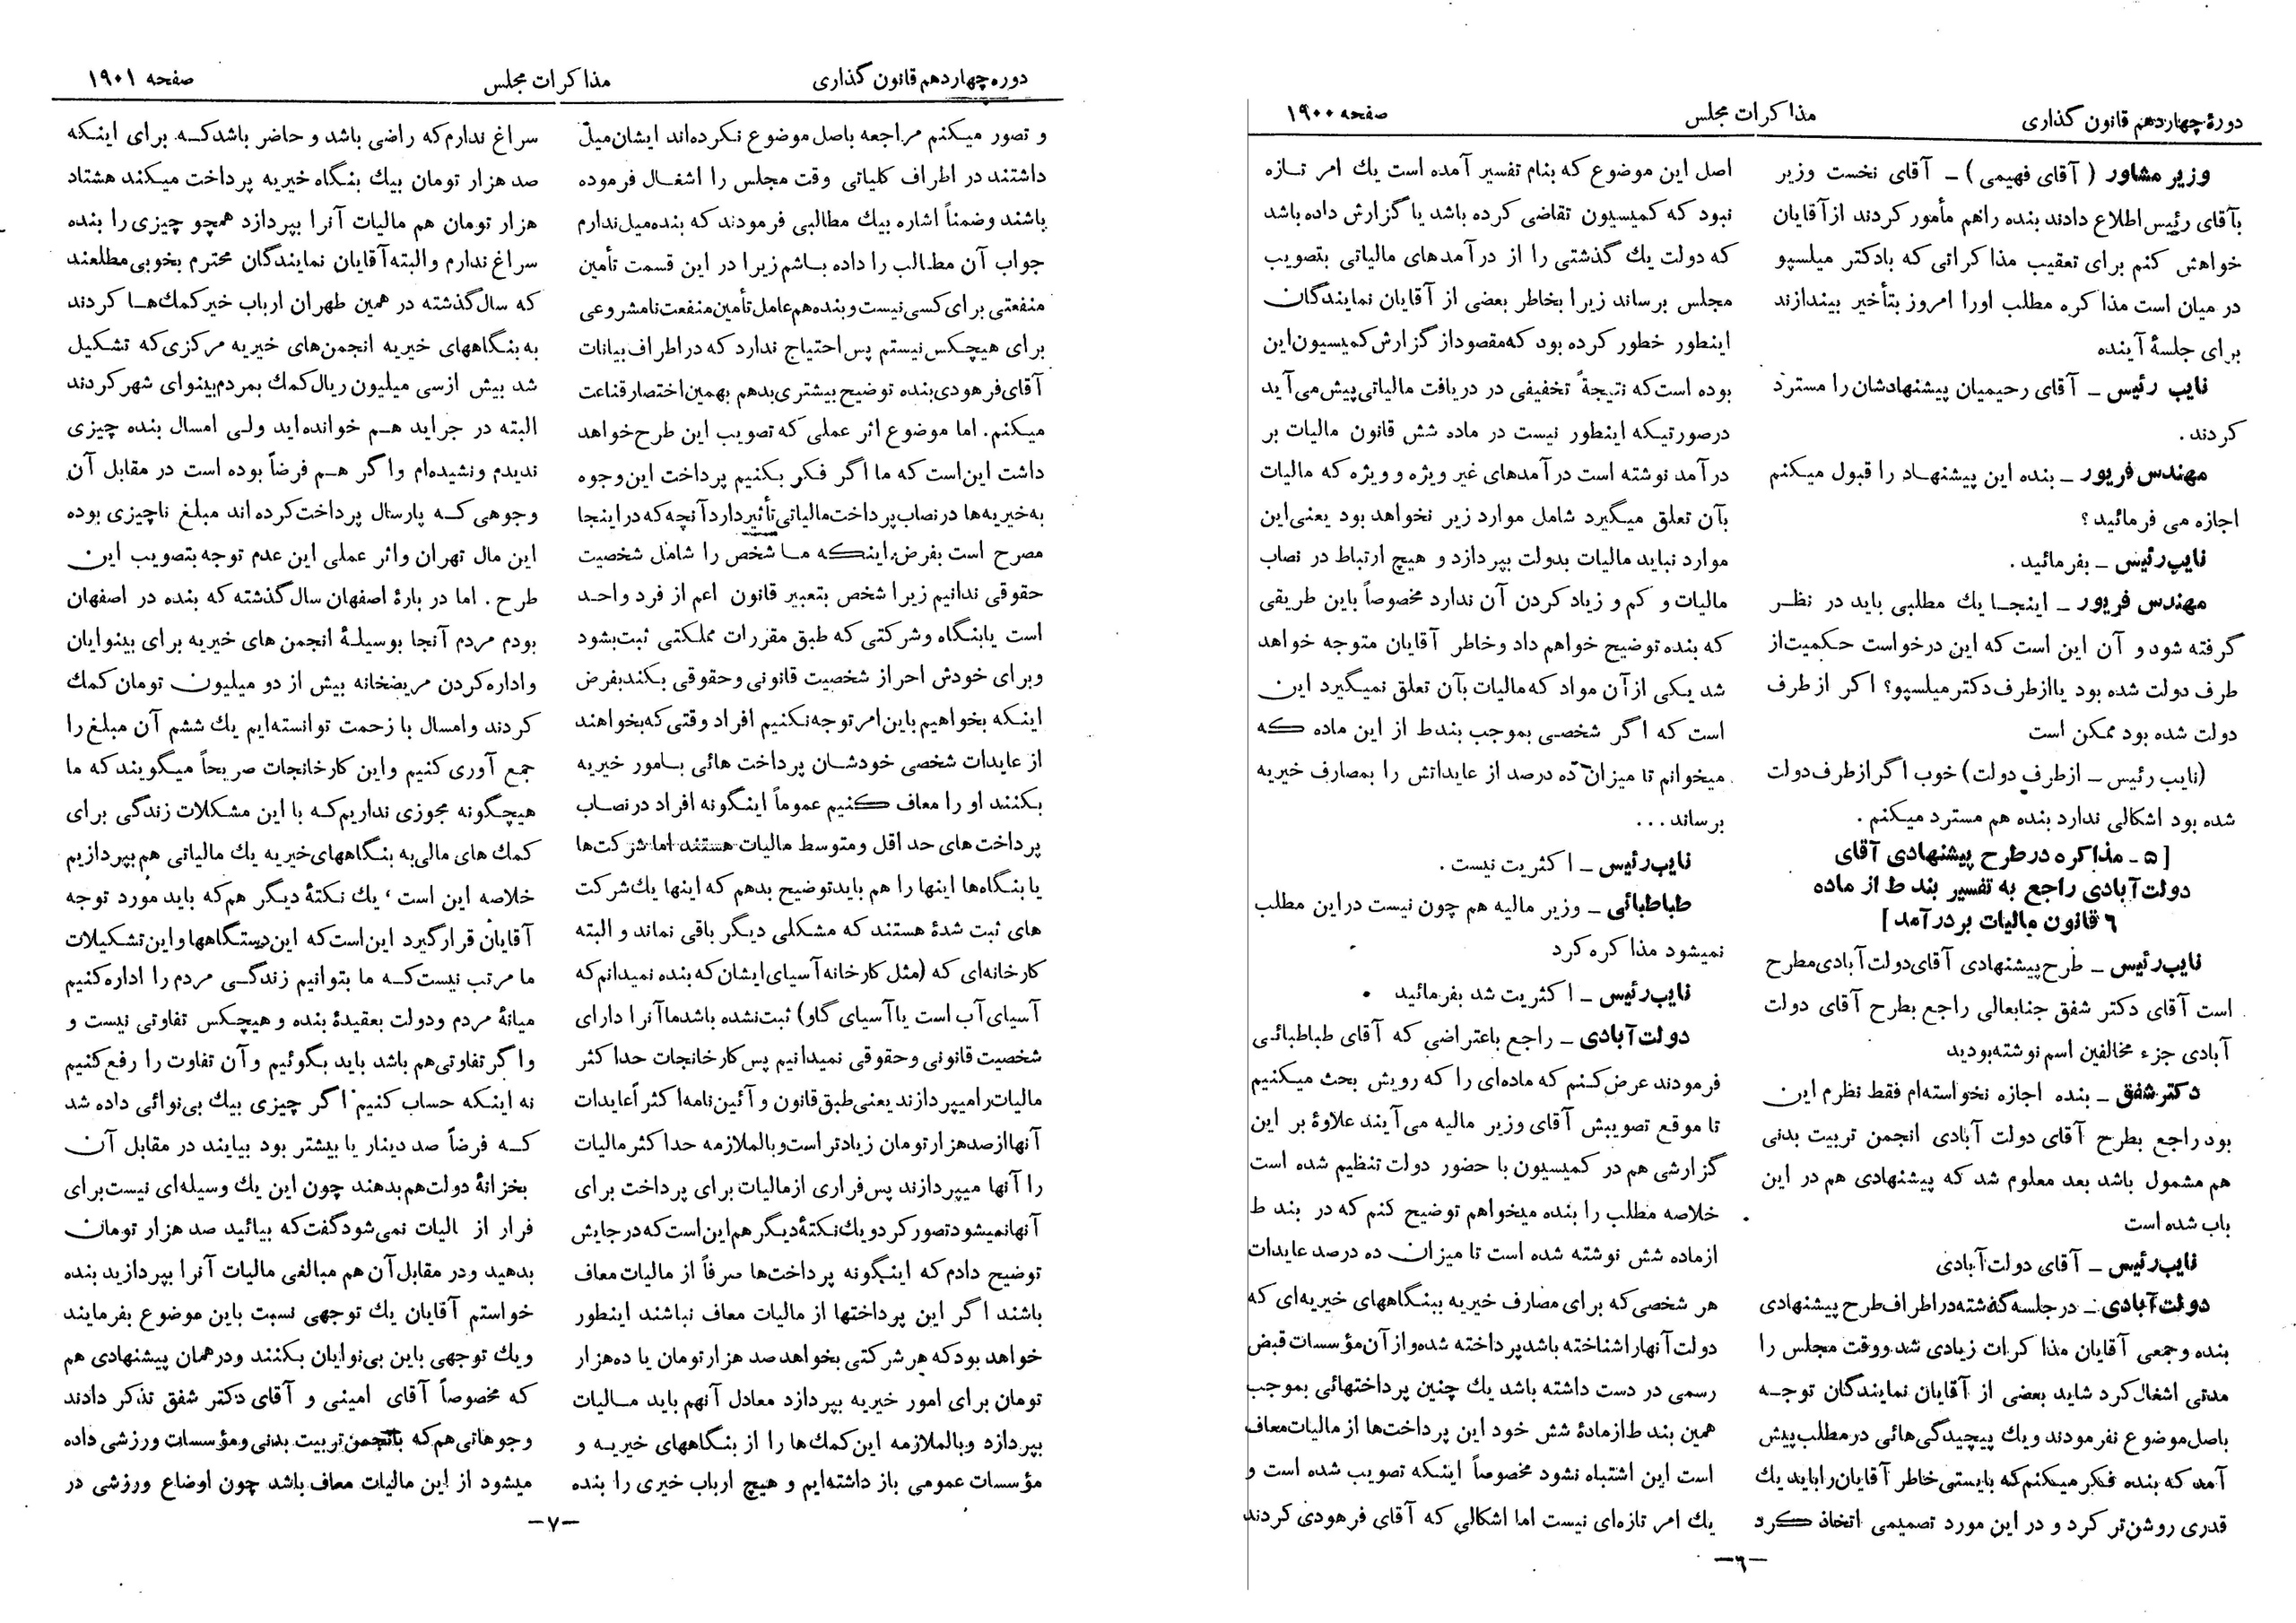 دورهٔ چهاردهم قانون گذاری
مذاکرات مجلس
صفحه ۱۹۰۰
وزیر مشاور ( آقای فهیمی ) ـ آقای نخست وزیر
بآقای رئیس اطلاع دادند بنده راهم مأمور کردند از آقایان
خواهش کنم برای تعقیب مذاکراتی که بادکتر میلسپو
در میان است مذاکره مطلب اورا امروز بتأخیر بیندازند
برای جلسهٔ آینده
نایب رئیس ـ آقای رحیمیان پیشنهادشان را مسترد
کردند .
مهندس فریور ـ بنده این پیشنهاد را قبول میکنم
اجازه می فرمائید ؟
نایب رئیس ـ بفرمائید .
مهندس فریور ـ اینجا یك مطلبی باید در نظر
گرفته شود و آن این است که این درخواست حکمیت از
طرف دولت شده بود یا ازطرف دکتر میلسپو؟ اکر از طرف
دولت شده بود ممکن است
(نایب رئیس ـ ازطرف دولت) خوب اگر ازطرف دولت
شده بود اشکالی ندارد بنده هم مسترد میکنم .
[ ۵ ـ مذاکره در طرح پیشنهادی آقای
دولت آبادی راجع به تفسیر بند ط از ماده
۶ قانون مالیات بر درآمد ]
نایب رئیس ـ طرح پیشنهادی آقای دولت آبادی مطرح
است آقای دکتر شفق جنابعالی راجع بطرح آقای دولت
آبادی جزء مخالفین اسم نوشته بودید
دکتر شفق ـ بنده اجازه نخواسته‌ام فقط نظرم این
بود راجع بطرح آقای دولت آبادی انجمن تربیت بدنی
هم مشمول باشد بعد معلوم شد که پیشنهادی هم در این
باب شده است
نایب رئیس ـ آقای دولت آبادی
دولت آبادی ـ در جلسه گذشته در اطراف طرح پیشنهادی
بنده و جمعی آقایان مذاکرات زیادی شد و وقت مجلس را
مدتی اشغال کرد شاید بعضی از آقایان نمایندگان توجه
باصل موضوع نفرمودند و یك پیچیدگی هائی در مطلب پیش
آمد که بنده فکر میکنم که بایستی خاطر آقایان را باید یك
قدری روشن‌تر کرد و در این مورد تصمیمی اتخاذ کرد
اصل این موضوع که بنام تفسیر آمده است یك امر تازه
نبود که کمیسیون تقاضی کرده باشد یا گزارش داده باشد
که دولت یك گذشتی را از درآمدهای مالیاتی بتصویب
مجلس برساند زیرا بخاطر بعضی از آقایان نمایندگان
اینطور خطور کرده بود که مقصود از گزارش کمیسیون این
بوده است که نتیجهٔ تخفیفی در دریافت مالیاتی پیش می آید
درصورتیکه اینطور نیست در ماده شش قانون مالیات بر
درآمد نوشته است درآمدهای غیر ویژه و ویژه که مالیات
بآن تعلق میگیرد شامل موارد زیر نخواهد بود یعنی این
موارد نباید مالیات بدولت بپردازد و هیچ ارتباط در نصاب
مالیات و کم و زیاد کردن آن ندارد مخصوصاً باین طریقی
که بنده توضیح خواهم داد وخاطر آقایان متوجه خواهد
شد یکی از آن مواد که مالیات بآن تعلق نمیگیرد این
است که اگر شخصی بموجب بند ط از این ماده که
میخوانم تا میزان ده درصد از عایداتش را بمصارف خیریه
برساند ...
نایب رئیس ـ اکثریت نیست .
طباطبائی ـ وزیر مالیه هم چون نیست در این مطلب
نمیشود مذاکره کرد
نایب رئیس ـ اکثریت شد بفرمائید .
دولت آبادی ـ راجع باعتراضی که آقای طباطبائی
فرمودند عرض کنم که ماده‌ای را که رویش بحث میکنیم
تا موقع تصویبش آقای وزیر مالیه می آیند علاوهٔ بر این
گزارشی هم در کمیسیون با حضور دولت تنظیم شده است
خلاصه مطلب را بنده میخواهم توضیح کنم که در بند ط
ازماده شش نوشته شده است تا میزان ده درصد عایدات
هر شخصی که برای مصارف خیریه ببنگاههای خیریه‌ای که
دولت آنها را شناخته باشد پرداخته شده و از آن مؤسسات قبض
رسمی در دست داشته باشد یك چنین پرداختهائی بموجب
همین بند ط از مادهٔ شش خود این پرداخت‌ها از مالیات معاف
است این اشتباه نشود مخصوصاً اینکه تصویب شده است و
یك امر تازه‌ای نیست اما اشکالی که آقای فرهودی کردند
ـ۶ـ
دوره چهاردهم قانون گذاری
مذاکرات مجلس
صفحه ۱۹۰۱
و تصور میکنم مراجعه باصل موضوع نکرده‌اند ایشان میل
داشتند در اطراف کلیاتی وقت مجلس را اشغال فرموده
باشند وضمناً اشاره بیك مطالبی فرمودند که بنده میل ندارم
جواب آن مطالب را داده باشم زیرا در این قسمت تأمین
منفعتی برای کسی نیست و بنده هم عامل تأمین منفعت نامشروعی
برای هیچکس نیستم پس احتیاج ندارد که در اطراف بیانات
آقای فرهودی بنده توضیح بیشتری بدهم بهمین اختصار قناعت
میکنم . اما موضوع اثر عملی که تصویب این طرح خواهد
داشت این است که ما اگر فکر بکنیم پرداخت این وجوه
به خیریه‌ها در نصاب پرداخت مالیاتی تأثیر دارد آنچه که در اینجا
مصرح است بفرض اینکه ما شخص را شامل شخصیت
حقوقی ندانیم زیرا شخص بتعبیر قانون اعم از فرد واحد
است یا بنگاه وشرکتی که طبق مقررات مملکتی ثبت بشود
وبرای خودش احراز شخصیت قانونی وحقوقی بکند بفرض
اینکه بخواهیم باین امر توجه نکنیم افراد وقتی که بخواهند
از عایدات شخصی خودشان پرداخت هائی بامور خیریه
بکنند او را معاف کنیم عموماً اینگونه افراد در نصاب
پرداخت های حداقل و متوسط مالیات هستند اما شرکت‌ها
یا بنگاه‌ها اینها را هم باید توضیح بدهم که اینها یك شرکت
های ثبت شدهٔ هستند که مشکلی دیگر باقی نماند و البته
کارخانه‌ای که (مثل کارخانه آسیای ایشان که بنده نمیدانم که
آسیای آب است یا آسیای گاو) ثبت نشده باشد ما آنرا دارای
شخصیت قانونی وحقوقی نمیدانیم پس کارخانجات حداکثر
مالیات را میپردازند یعنی طبق قانون و آئین نامه اکثراً عایدات
آنها از صد هزار تومان زیادتر است و بالملازمه حداکثر مالیات
را آنها میپردازند پس فراری از مالیات برای پرداخت برای
آنها نمیشود تصور کرد و یك نکتهٔ دیگر هم این است که در جایش
توضیح دادم که اینگونه پرداخت‌ها صرفاً از مالیات معاف
باشند اگر این پرداختها از مالیات معاف نباشند اینطور
خواهد بود که هر شرکتی بخواهد صد هزار تومان یا ده هزار
تومان برای امور خیریه بپردازد معادل آنهم باید مالیات
بپردازد وبالملازمه این کمك ها را از بنگاههای خیریه و
مؤسسات عمومی باز داشته‌ایم و هیچ ارباب خیری را بنده
سراغ ندارم که راضی باشد و حاضر باشد که برای اینکه
صد هزار تومان بیك بنگاه خیریه پرداخت میکند هشتاد
هزار تومان هم مالیات آنرا بپردازد همچو چیزی را بنده
سراغ ندارم والبته آقایان نمایندگان محترم بخوبی مطلعند
که سال گذشته در همین طهران ارباب خیر کمك ها کردند
به بنگاههای خیریه انجمن‌های خیریه مرکزی که تشکیل
شد بیش ازسی میلیون ریال کمك بمردم بینوای شهر کردند
البته در جراید هم خوانده‌اید ولی امسال بنده چیزی
ندیدم ونشیده‌ام واگر هم فرضاً بوده است در مقابل آن
وجوهی که پارسال پرداخت کرده اند مبلغ ناچیزی بوده
این مال تهران واثر عملی این عدم توجه بتصویب این
طرح . اما در بارهٔ اصفهان سال گذشته که بنده در اصفهان
بودم مردم آنجا بوسیلهٔ انجمن های خیریه برای بینوایان
واداره کردن مریضخانه بیش از دو میلیون تومان کمك
کردند وامسال با زحمت توانسته‌ایم یك ششم آن مبلغ را
جمع آوری کنیم واین کارخانجات صریحاً میگویند که ما
هیچگونه مجوزی نداریم که با این مشکلات زندگی برای
کمك های مالی به بنگاههای خیریه یك مالیاتی هم بپردازیم
خلاصه این است ، یك نکتهٔ دیگر هم که باید مورد توجه
آقایان قرار گیرد این است که این دستگاهها و این تشکیلات
ما مرتب نیست که ما بتوانیم زندگی مردم را اداره کنیم
میانهٔ مردم ودولت بعقیدهٔ بنده و هیچکس تفاوتی نیست و
واگر تفاوتی هم باشد باید بگوئیم و آن تفاوت را رفع کنیم
نه اینکه حساب کنیم اگر چیزی بیك بی‌نوائی داده شد
که فرضاً صد دینار یا بیشتر بود بیایند در مقابل آن
بخزانهٔ دولت هم بدهند چون این یك وسیله‌ای نیست برای
فرار از الیات نمی شود گفت که بیائید صد هزار تومان
بدهید ودر مقابل آن هم مبالغی مالیات آنرا بپردازید بنده
خواستم آقایان یك توجهی نسبت باین موضوع بفرمایند
ویك توجهی باین بی‌نوایان بکنند ودرهمان پیشنهادی هم
که مخصوصاً آقای امینی و آقای دکتر شفق تذکر دادند
وجوهاتی هم که بانجمن تربیت بدنی ومؤسسات ورزشی داده
میشود از این مالیات معاف باشد چون اوضاع ورزشی در
ـ۷ـ